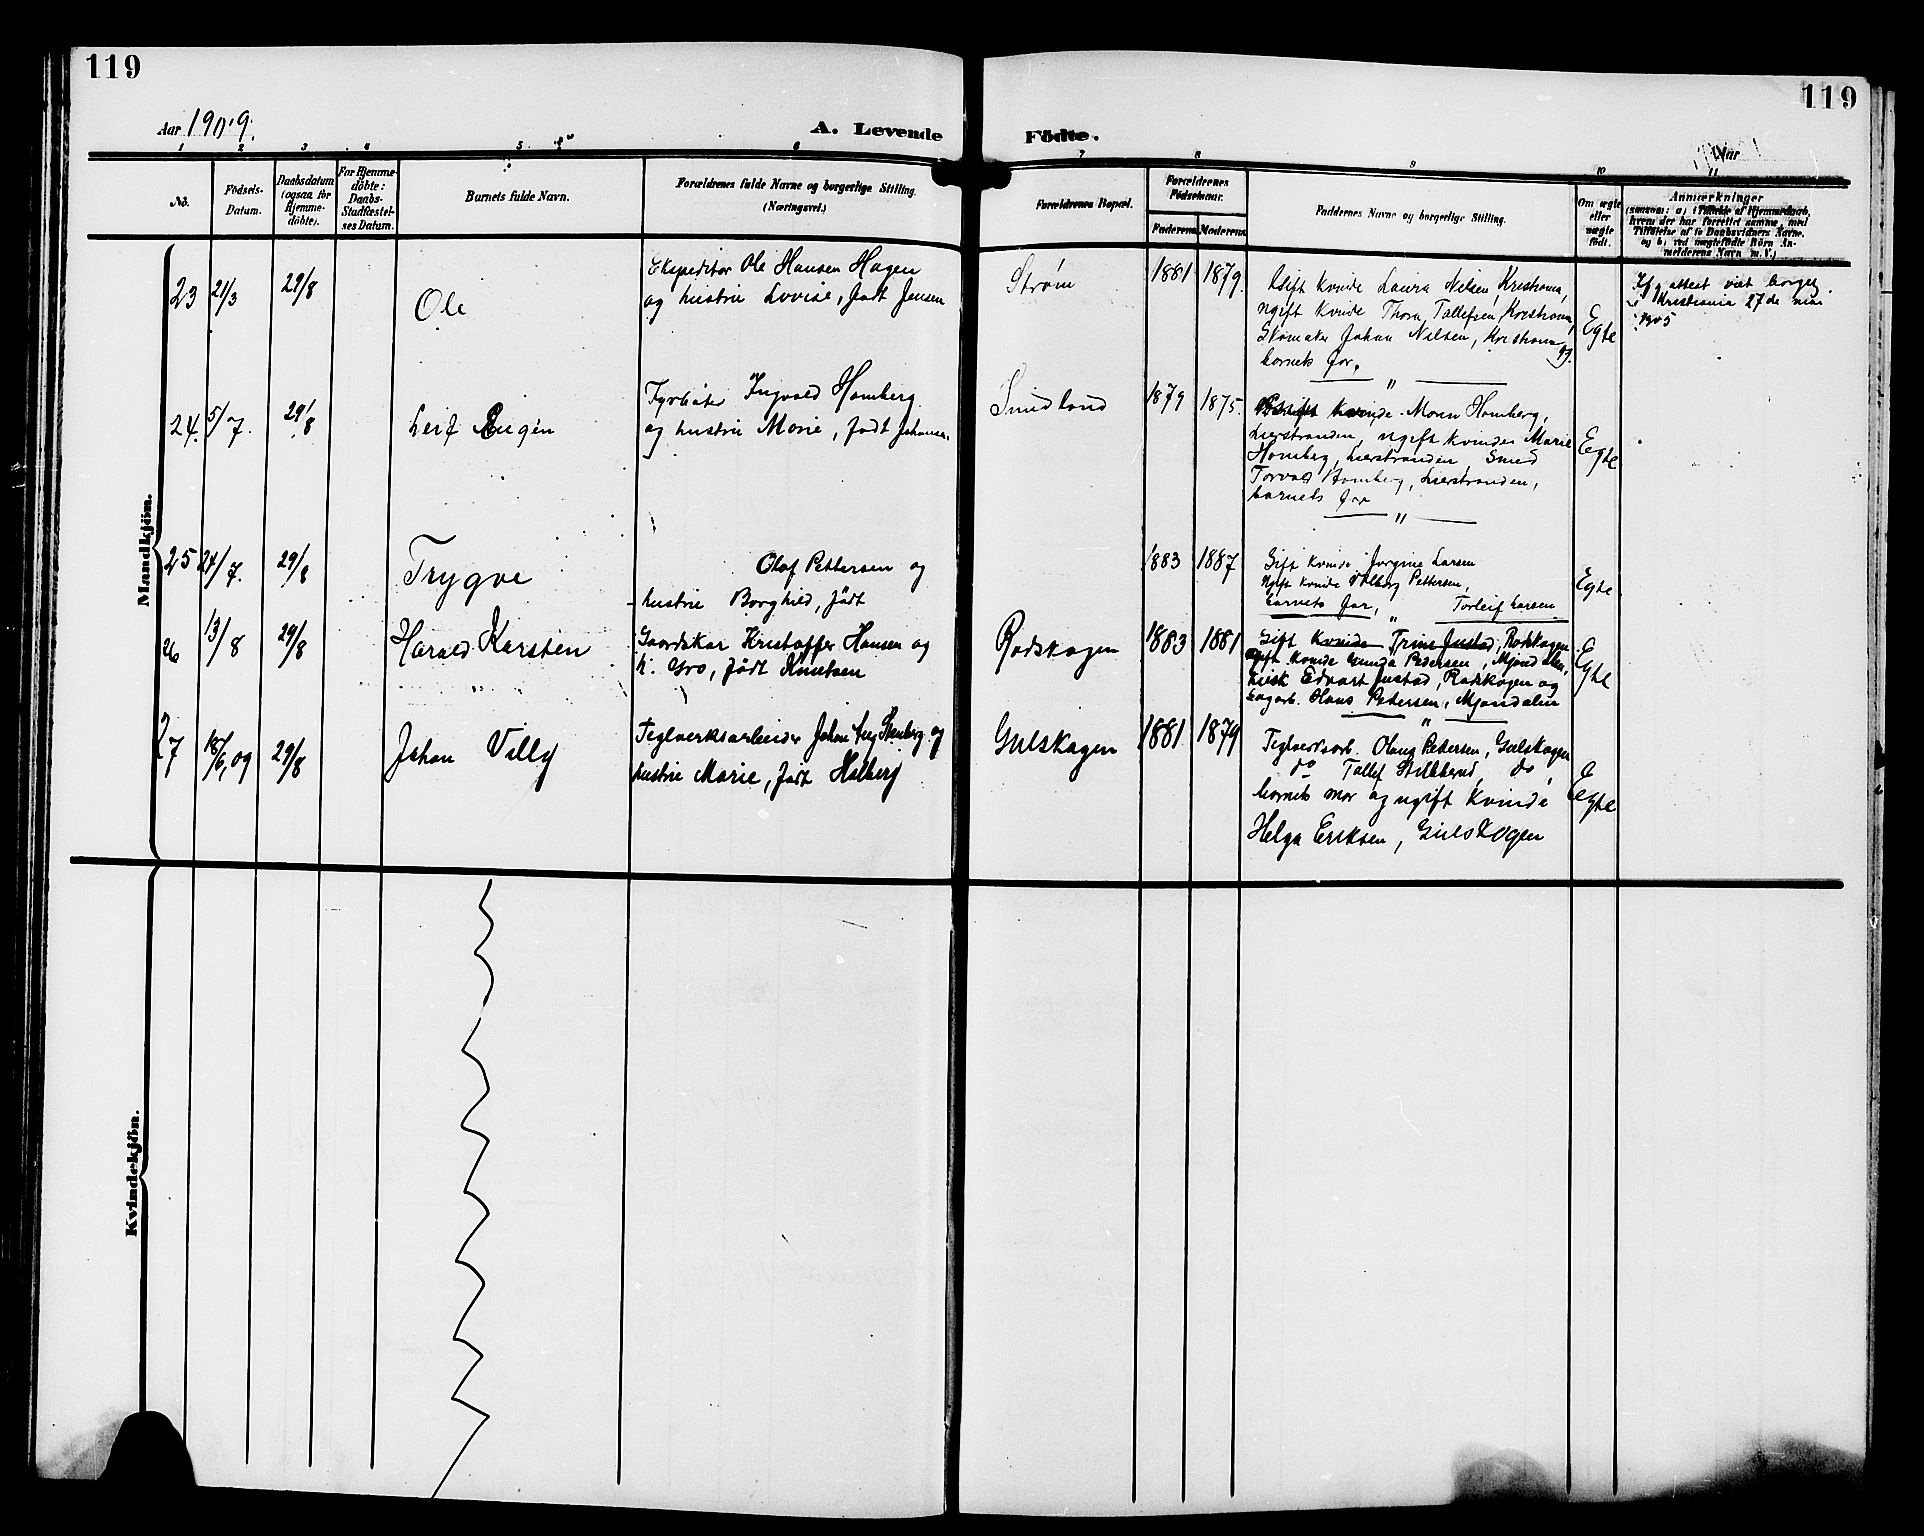 119
119
Aar 1909.
A. Levende Födte.
Aar
1 2 3 4 5 6 7 8 9 10 11
No.
Födsels-
Datum.
Daabsdatum
(ogsaa for
Hjemme-
döbte).
For Hjemme-
döbte:
Daabs-
Stadfæstel-
ses Datum.
Barnets fulde Navn.
Forældrenes fulde Navne og borgerlige Stilling.
(Næringsvei.)
Forældrenes Bopæl.
Forældrenes
Födselsaar.
Faderens Moderens
Faddernes Navne og borgerlige Stilling.
Om ægte
eller
uægte
födt.
Anmærkninger
(saasom: a) i Tilfælde af Hjemmedaab,
hvem der har forrettet samme, med
Tilföielse af to Daabsvidners Navne,
og b) ved uægtefödte Börn An-
melderens Navn m. V.)
Mandkjön.
23 21/3 29/8
Ole
Ekspeditør Ole Hansen Hagen
og hustru Lovise, født Jensen
Strøm
1881 1879.
Gift kvinde Laura Nilsen, Kristiania,
ugift kvinde Thora Tollefsen, Kristiania,
Skomaker Johan Nilsen, Kristiania og
barnets far.
Egte
attest viet borgel.
Kristiania 27de mai
1905
24. 5/7. 29/8
Leif Eugen
Fyrbøter Ingvald Homberg
og hustru Marie, født Johansen.
Smedland
1879 1875.
kvinde Maren Homberg,
Lierstranden, ugift kvinde Marie
Homberg, Lierstranden Smed
Torvald Homberg, Lierstranden,
barnets far
Egte
25 24/7. 29/8
Trygve
Olaf Pettersen og
hustru Borghild, født
1883 1887
Gift kvinde Jorgine Larsen
Ugift kvinde Valborg Pettersen,
barnets far, Torleif Larsen
Egte
26 13/8 29/8
Harald Karsten
Gaardskar Kristoffer Hansen og
h. Gro, født Knutsen
Rødskogen
1883 1881
Gift kvinde Trine Justad, Rødskogen
gift kvinde Gunda Pedersen, Mjøndalen,
Edvart Justad, Rødskogen og
Olaus Pedersen, Mjøndalen
Egte
27 18/6,09 29/8
Johan Villy
Teglverksarbeider Johan Stenberg og
hustru Marie, født Halberg
Gulskogen
1881 1879
Teglverksarb. Olaug Pedersen, Gulskogen
do Tollef do,
barnets mor og ugift kvinde
Helga Eriksen, Gulskogen
Egte
Kvindekjön.